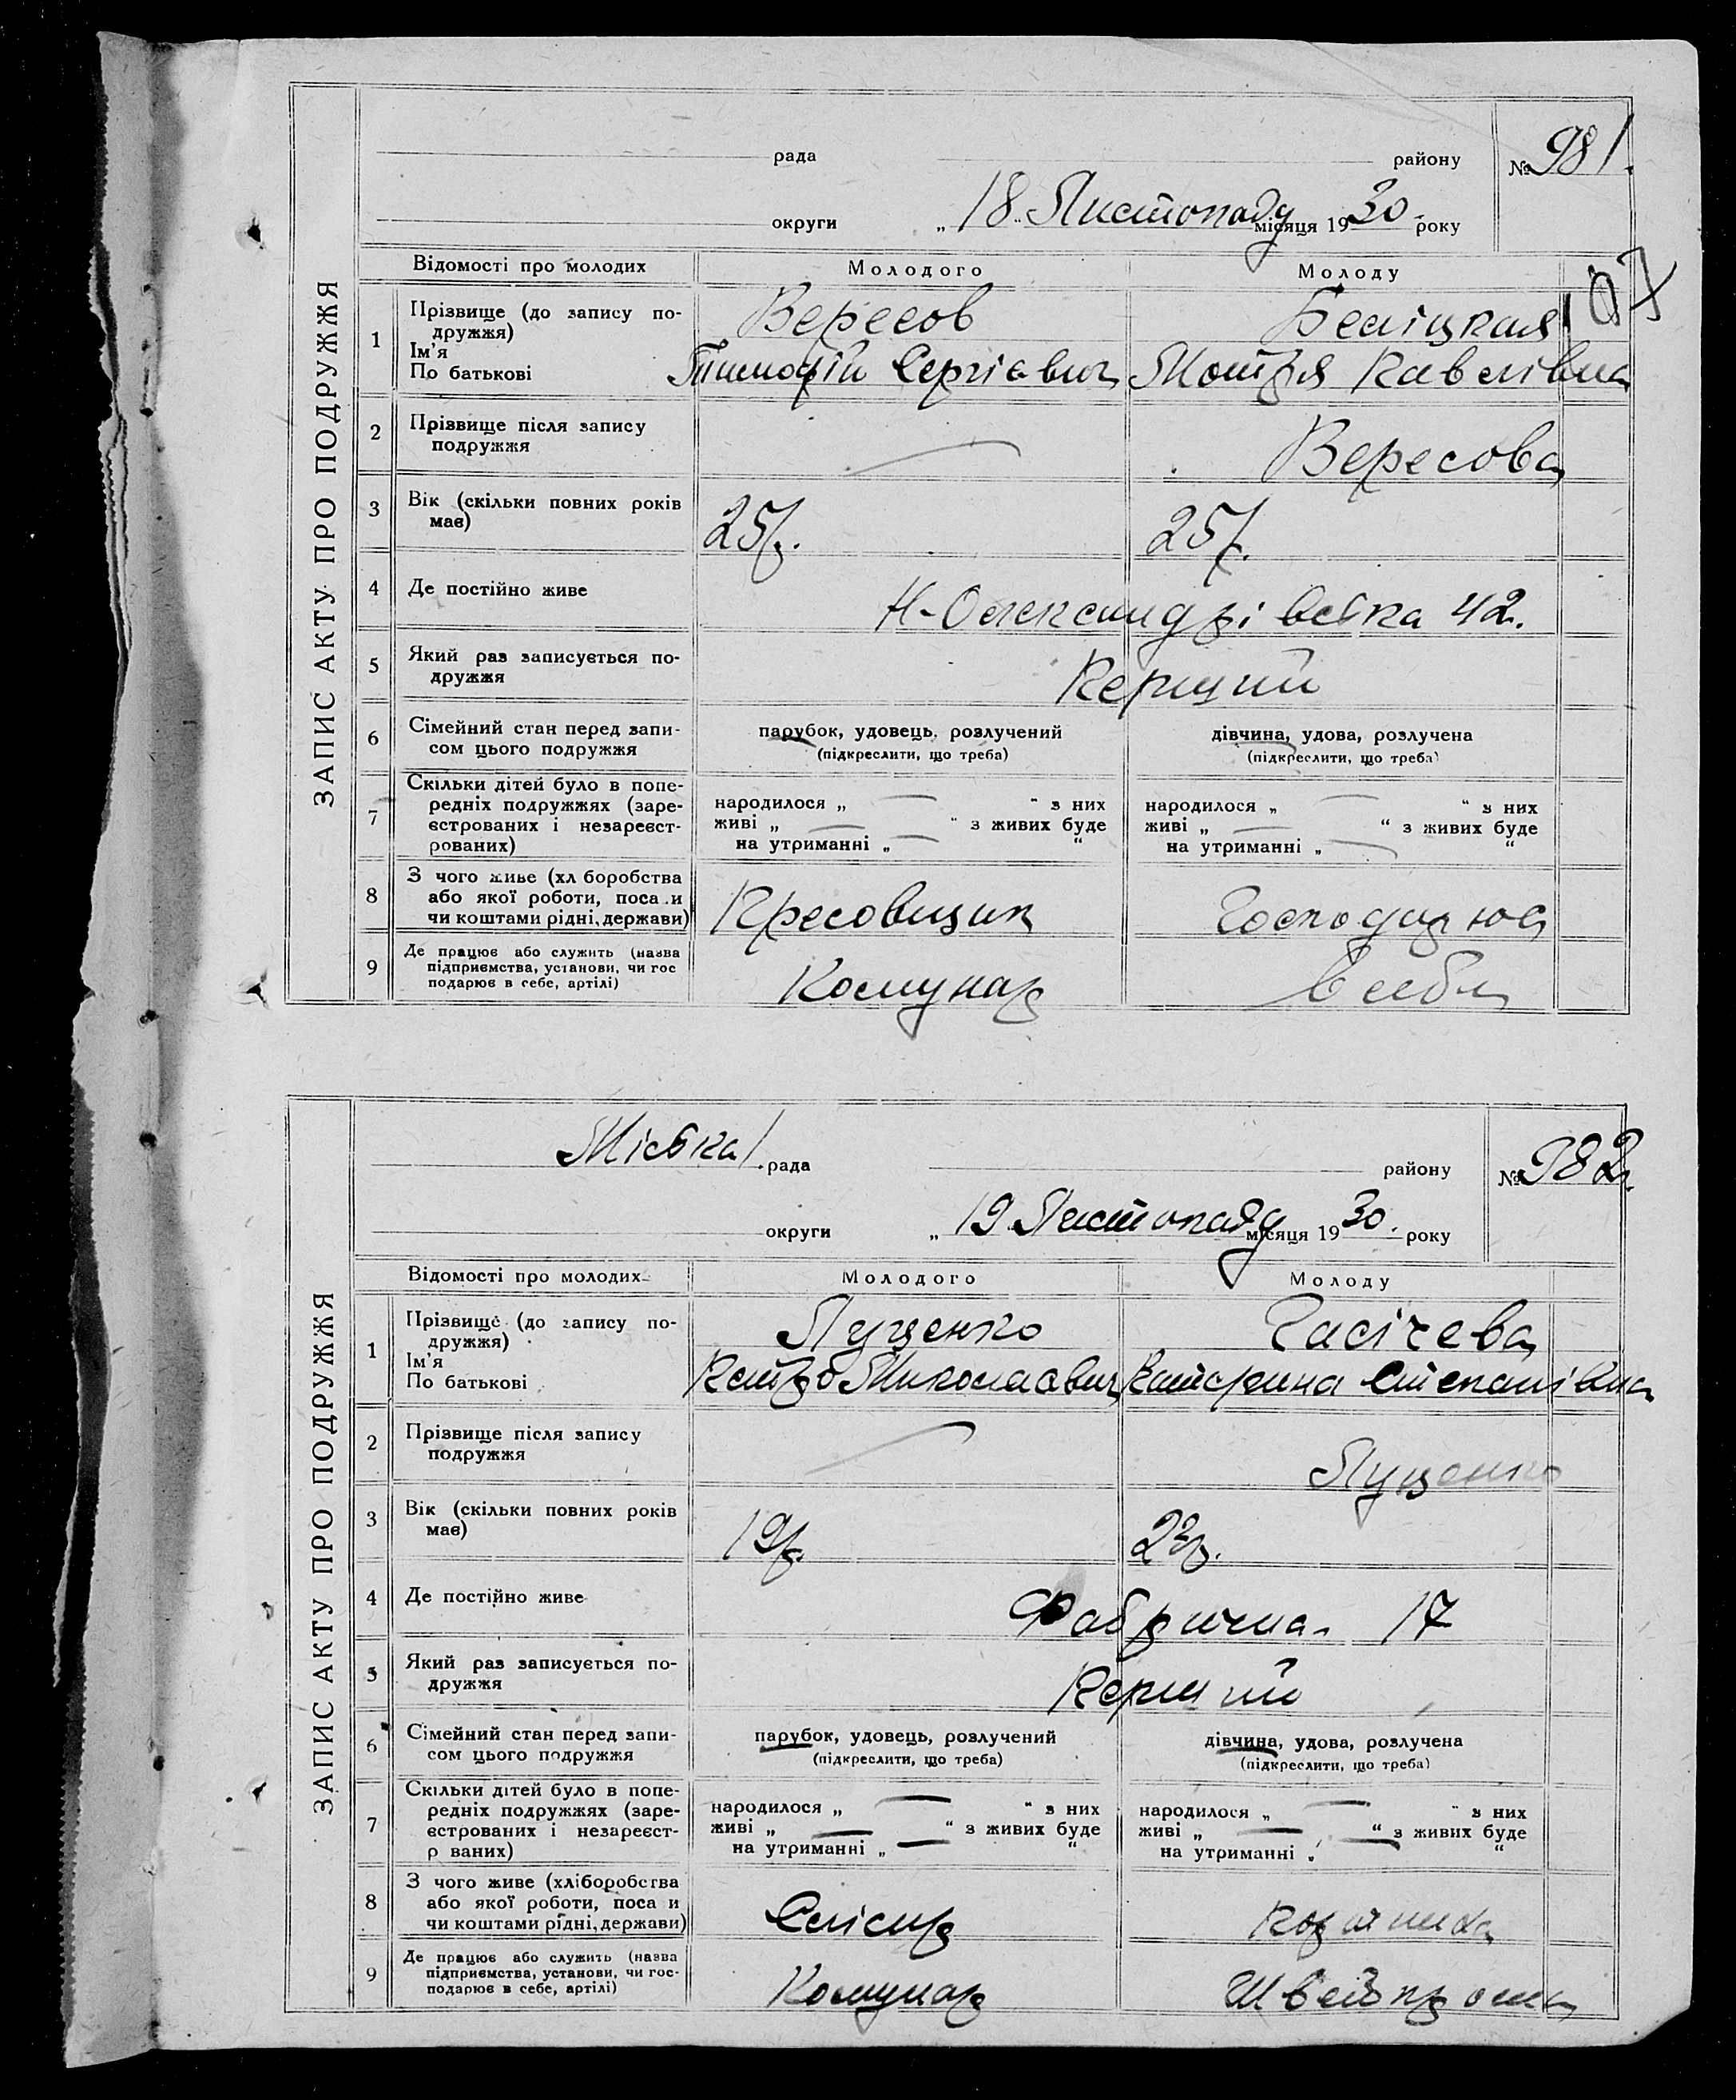 ЗАПИС АКТУ ПРО ПОДРУЖЖЯ
рада району № 981.
округи „18" Листопаду місяця 1930 року
107
Відомості про молодих Молодого Молоду
1 Прізвище (до запису по- Вересов Беліцкая
дружжя)
Ім'я
По батькові Тимофій Сергієвич Мотря Павлівна
2 Прізвище після запису — Вересова
подружжя
3 Вік (скільки повних років 25 р. 25 р.
має)
4 Де постійно живе Н-Олександрівська 42.
5 Який раз записується по- Перший
дружжя
6 Сімейний стан перед запи- парубок, удовець, розлучений дівчина, удова, розлучена
сом цього подружжя (підкреслити, що треба) (підкреслити, що треба)
7 Скільки дітей було в попе-
редніх подружжях (заре- народилося „ — " з них народилося „ — " з них
єстрованих і незареєст- живі „ — " з живих буде живі „ — " з живих буде
рованих) на утриманні „ — " на утриманні „ — "
8 З чого живе (хл боробства
або якої роботи, поса и Пресовщик Господарює
чи коштами рідні, держави)
9 Де працює або служить (назва
підприємства, установи, чи гос Комунар в себе
подарює в себе, артілі)
ЗАПИС АКТУ ПРО ПОДРУЖЖЯ
Міська рада району № 982.
округи „19" Листопаду місяця 1930. року
Відомості про молодих Молодого Молоду
1 Прізвище (до запису по- Луценко
дружжя)
Ім'я
По батькові Петро Миколаєвич Катерина Степанівна
2 Прізвище після запису — Луценко
подружжя
3 Вік (скільки повних років 19 р. 23 р.
має)
4 Де постійно живе Фабрична. 17
5 Який раз записується по- Перший
дружжя
6 Сімейний стан перед запи- парубок, удовець, розлучений дівчина, удова, розлучена
сом цього подружжя (підкреслити, що треба) (підкреслити, що треба)
7 Скільки дітей було в попе-
редніх подружжях (заре- народилося „ — " з них народилося „ — " з них
єстрованих і незареєст- живі „ — " з живих буде живі „ — " з живих буде
р ваних) на утриманні „ — " на утриманні „ — "
8 З чого живе (хліборобства
або якої роботи, поса и Слісар
чи коштами рідні, держави)
9 Де працює або служить (назва
підприємства, установи, чи гос- Комунар
подарює в себе, артілі)